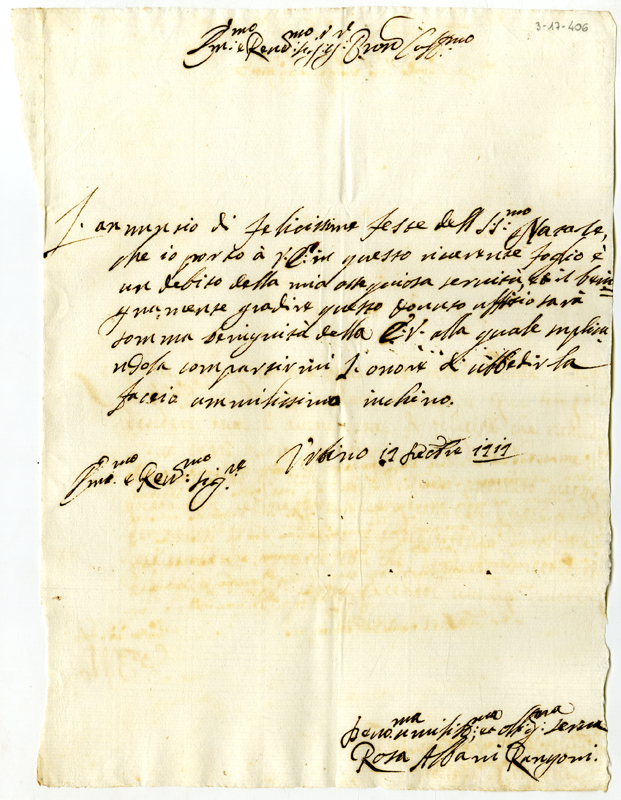 3-17-406
Em.mo e Rend.mo Sig.r Sig.r Pron Coll.mo
L'annuncio di felicissime feste dell SS.mo Natale,
che io porto à V.E. in questo riverente foglio è
un debito della mia ossequiosa servitù, et il beni=
gnamente gradire questo dovuto uffizio sarà
somma benignità della E.V. alla quale suplica
ndola compartirmi l'onore di ubbedirla
faccio umilissimo inchino.
Em.mo e Rend.mo Sig.re
Urbino 17 Decbre 1717
Devo.ma umiliss.ma et obblig.ma serva
Rosa Albani Rangoni.